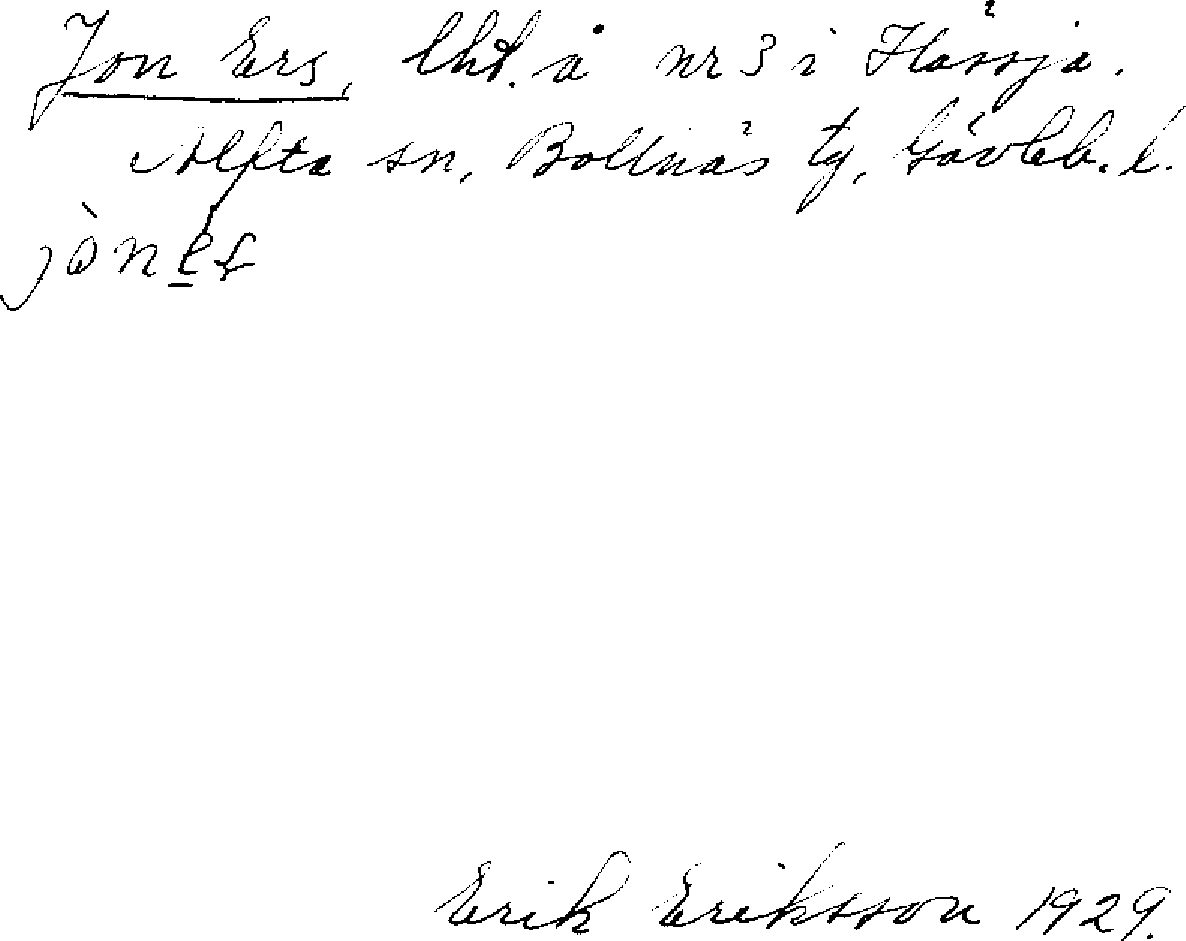 Jon Ers, lht. å nr 3 i Hässja.
Alfta sn, Bollnäs tg, Gävleb. l.
jò̀n
Erik Eriksson 1929.